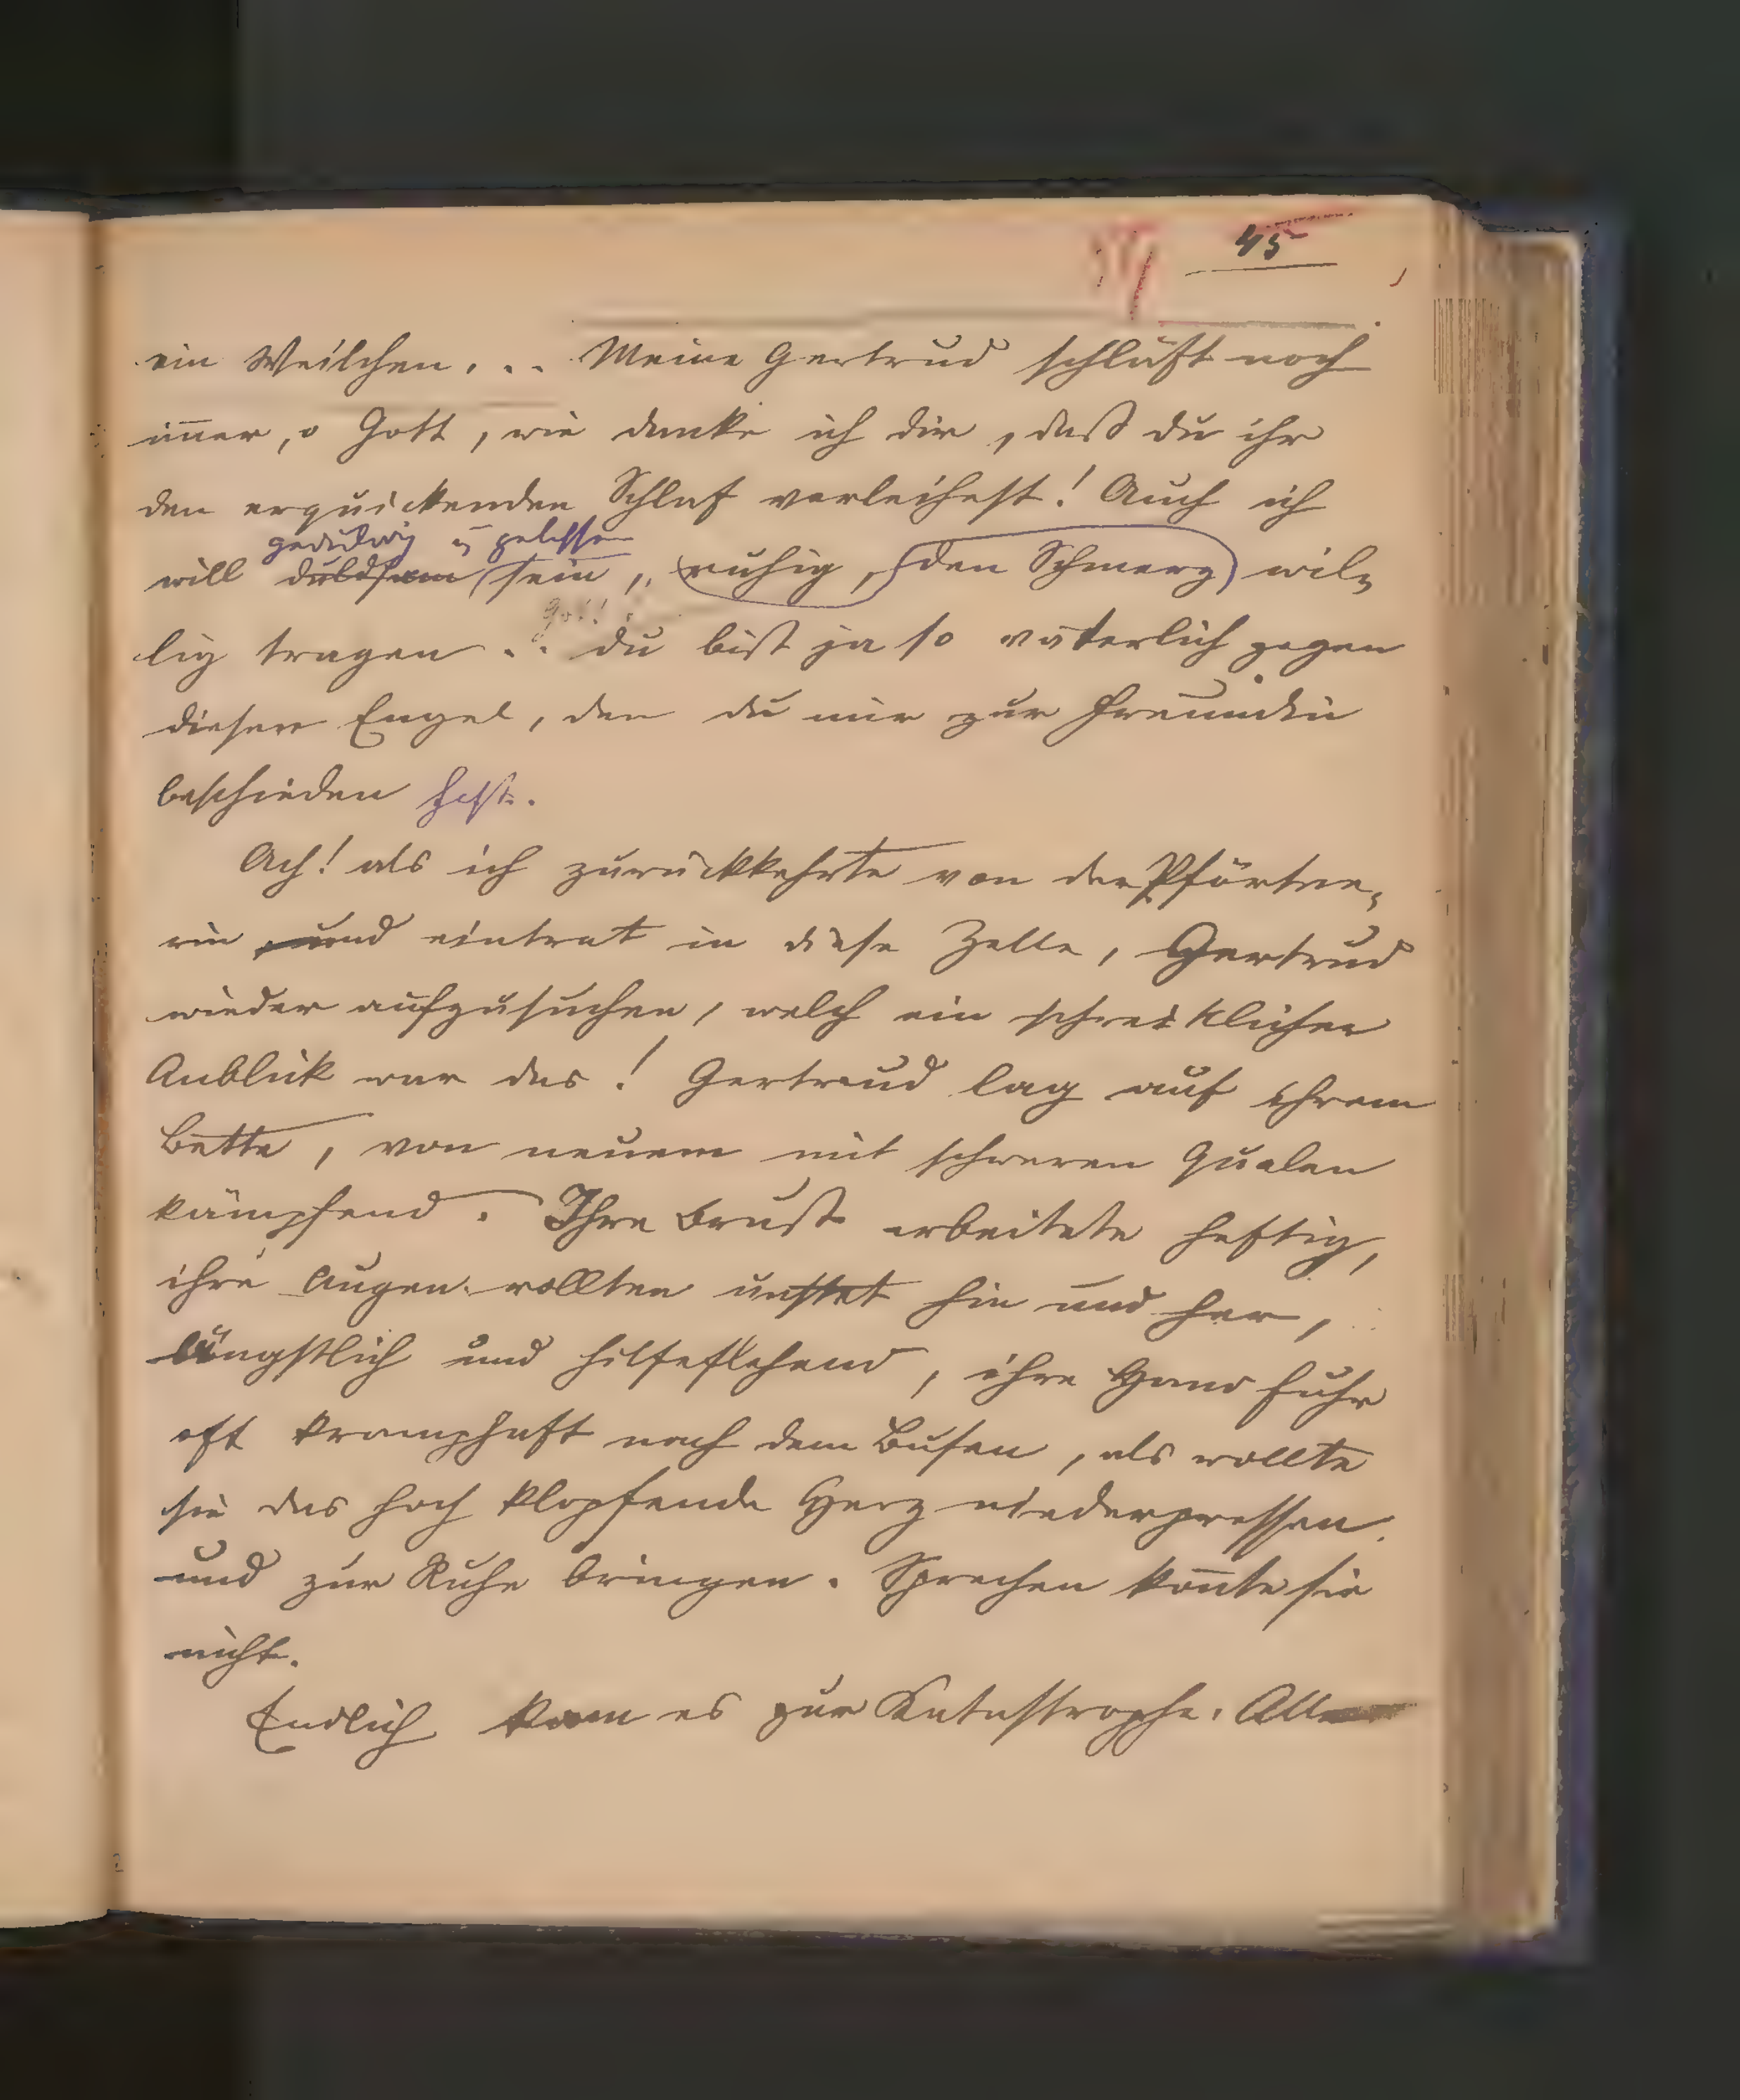 45
ein Weilchen... Meine Gertrud schläft noch
im̄er, o Gott, wie danke ich dir, daß du ihr
den erquickenden Schlaf verleihest! Auch ich
geduldig u gelassen
will duldsam sein, ruhig, den Schmerz wil-
Gott!
lig tragen .. du bist ja so väterlich gegen
diesen Engel, den du mir zur Freundin
beschieden hast.
Ach! als ich zurückkehrte von der Pförtne-
rin und eintrat in diese Zelle, Gertrud
wieder aufzusuchen, welch ein schrecklicher
Anblick war das! Gertrud lag auf ihrem
Bette, von neuem mit schweren Qualen
kämpfend. Ihre Brust arbeitete heftig,
ihre Augen rollten unstet hin und her,
ängstlich und hilfeflehend, ihre Hand fuhr
oft krampfhaft nach dem Busen, als wollte
sie das hoch klopfende Herz niederpressen
und zur Ruhe bringen. Sprechen kon̄te sie
nicht.
Endlich kam es zur Katastrophe. Alle